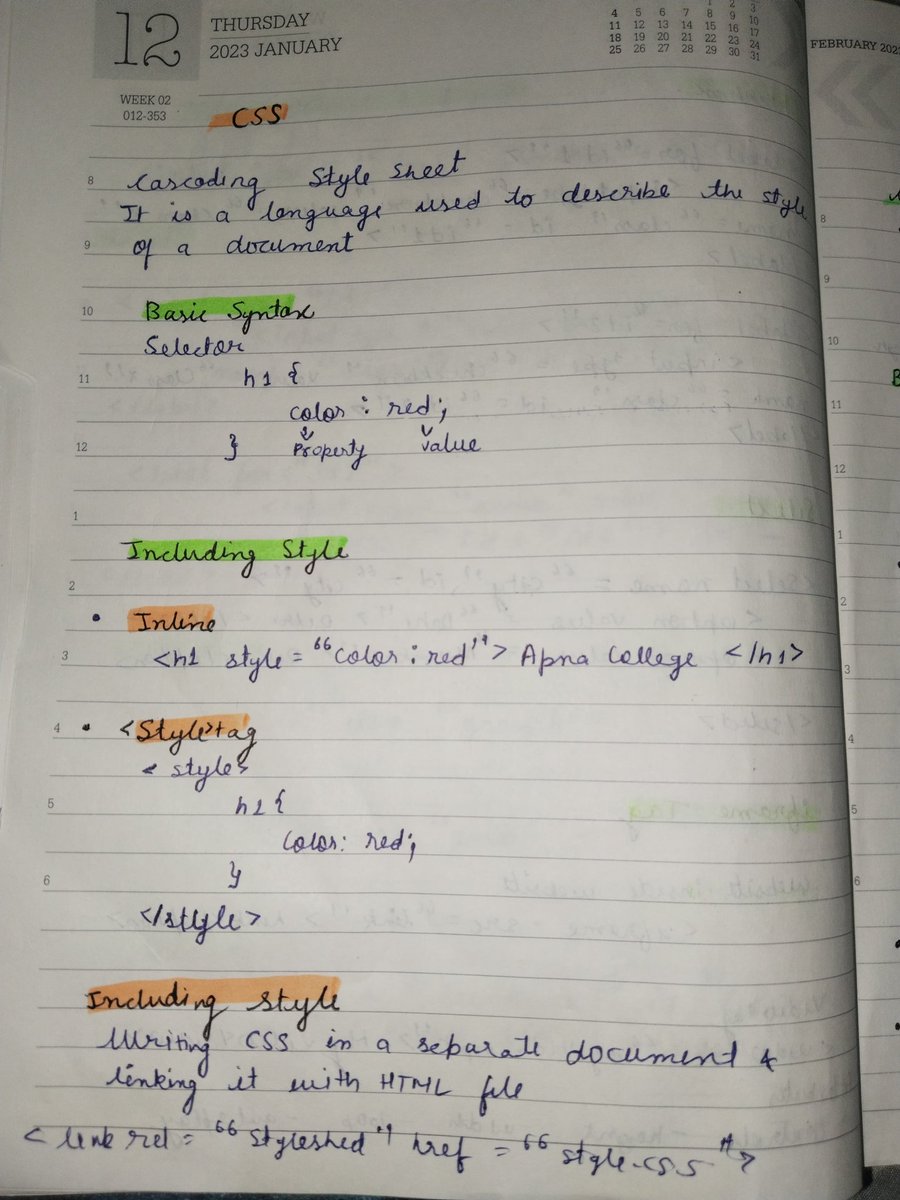 12
THURSDAY
2023 JANUARY
1 2 3
4 5 6 7 8 9 10
11 12 13 14 15 16 17
18 19 20 21 22 23 24
25 26 27 28 29 30 31
FEBRUARY 202
WEEK 02
012-353
CSS
8 Cascading Style Sheet
It is a language used to describe the style
9 of a document
10 Basic Syntax
Selector
11 h1 {
color : red;
12 } Property Value
1
Including Style
2
• Inline
3 <h1 style = "color : red"> Apna College </h1>
4 • <Style>tag
< style>
5 h1 {
Color: red;
6 }
</style>
Including Style
Writing CSS in a separate document &
linking it with HTML file
< link rel = "Styleshed" href = "style.css">
8
9
10
11
12
1
2
3
4
5
6